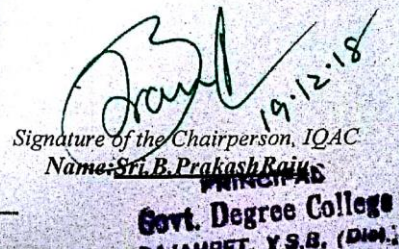 19.12.18
Signature of the Chairperson, IQAC
Name: Sri.B.Prakash Raju
PRINCIPAL
Govt. Degree College
RAJAMPET, Y.S.R. (Dist.)